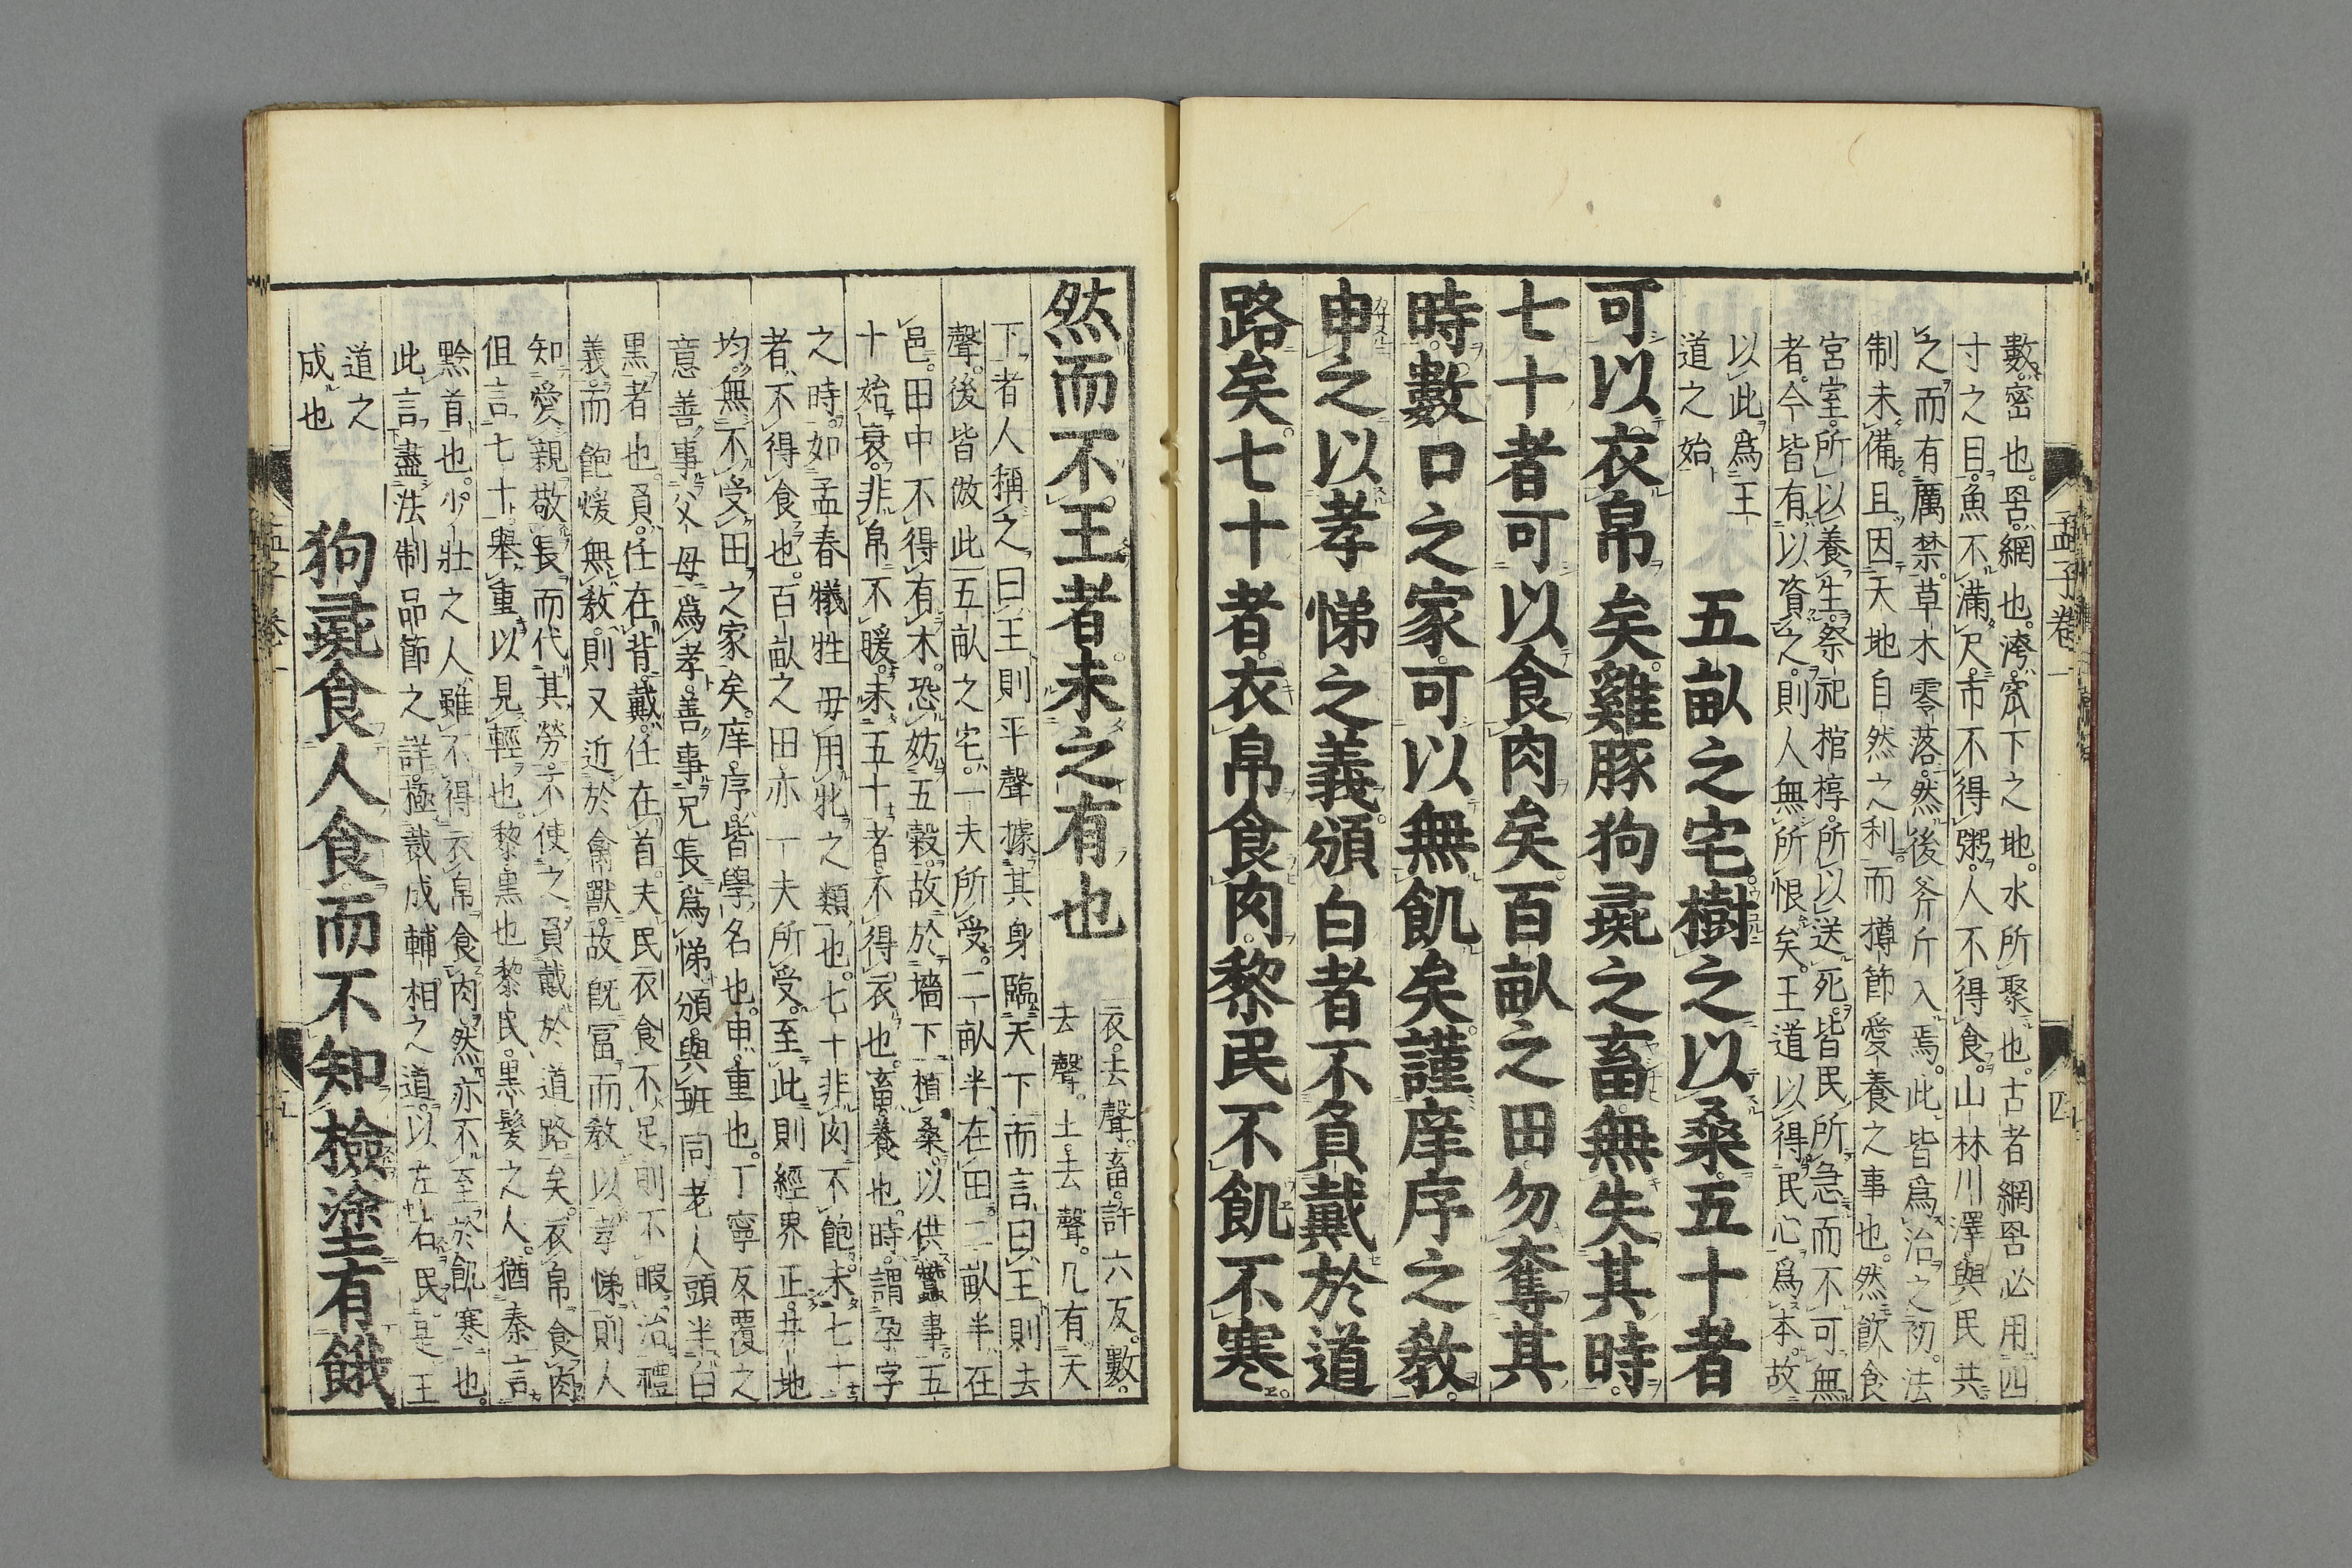 孟子卷一　四
數密也。罟網也。洿窊下之地。水所聚也。古者網罟必用四
寸之目。魚不滿尺。市不得粥。人不得食。山林川澤與民共
之而有厲禁。草木零落。然後斧斤入焉。此皆爲治之初。法
制未備。且因天地自然之利。而撙節愛養之事也。然飮食
宮室。所以養生。祭祀棺椁。所以送死。皆民所急而不可無
者。今皆有以資之。則人無所恨矣。王道以得民心爲本。故
以此爲王
道之始
五畝之宅。樹之以桑。五十者
可以衣帛矣。雞豚狗彘之畜。無失其時。
七十者可以食肉矣。百畝之田。勿奪其
時。數口之家。可以無飢矣。謹庠序之敎。
申之以孝悌之義。頒白者不負戴於道
路矣。七十者衣帛食肉。黎民不飢不寒。
然而不王者。未之有也
衣。去聲。畜。許六反。數。
去聲。王去聲。凡有天
下者人稱之曰王則平聲據其身臨天下而言曰王則去
聲。後皆倣此。五畝之宅。一夫所受。二畝半在田。二畝半在
邑。田中不得有木。恐妨五穀。故於墻下植桑。以供蠶事。五
十始衰。非帛不暖。未五十者。不得衣也。畜養也。時。謂孕字
之時。如孟春犧牲毋用牝之類也。七十非肉不飽。未七十
者。不得食也。百畝之田。亦一夫所受。至此則經界正。井地
均。無不受田之家矣。庠序。皆學名也。申。重也。丁寧反覆之
意。善事父母爲孝。善事兄長爲悌。頒與班同。老人頭半白
黑者也。負。任在背。戴。任在首。夫民衣食不足。則不暇治禮
義。而飽煖無敎。則又近於禽獸。故旣富而敎以孝悌。則人
知愛親敬長。而代其勞。不使之負戴於道路矣。衣帛食肉
但言七十。擧重以見輕也。黎。黑也。黎民。黑髮之人。猶秦言
黔首也。少壯之人。雖不得衣帛食肉。然亦不至於飢寒也。
此言盡法制品節之詳。極裁成輔相之道。以左右民。是王
道之
成也
狗彘食人食而不知檢。塗有餓
孟子卷一　五